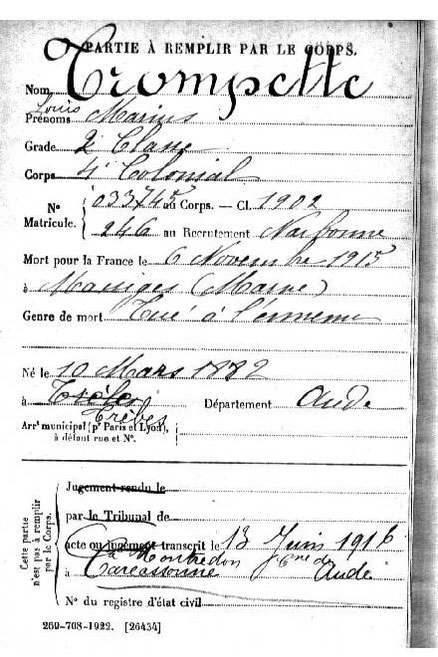 PARTIE À REMPLIR PAR LE CORPS.
Nom Trompette
Louis
Prénoms Marius
Grade 2e Classe
Corps 4e Colonial
No 033745 au Corps. — Cl. 1902
Matricule. 246 au Recrutement Narbonne
Mort pour la France le 6 Novembre 1915
à Massiges (Marne)
Genre de mort Tué à l'ennemi
Né le 10 Mars 1882
à Trèbes Département Aude
Arrt municipal (pr Paris et Lyon),
à défaut rue et No.
Cette partie
n'est pas à remplir
par le Corps.
Jugement rendu le
par le Tribunal de
acte ou jugement transcrit le 13 Juin 1916
à Montredon Cne de
Carcassonne Aude
No du registre d'état civil
269-708-1922. [26434]